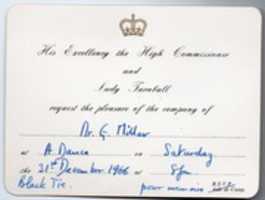 His Excellency the High Commissioner
and
Lady Turnbull
request the pleasure of the company of
Mr. G. Millar
at A Dance on Saturday
the 31st December 1966 8pm
Black Tie. pour memoire